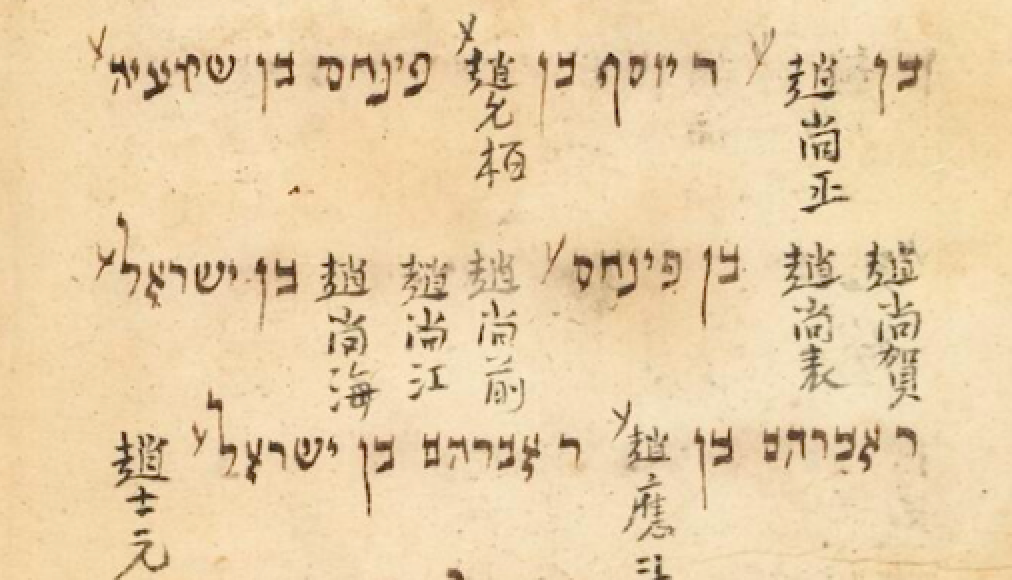 בן 趙尚正 ע ר יוסף בן 趙允栢 ע פינחס בן ע
趙尚賀 趙尚表 בן פינחס ע 趙尚前 趙尚江 趙尚海 בן ישראל ע
ר אברהם בן 趙應 ע ר אברהם בן ישראל ע 趙士元